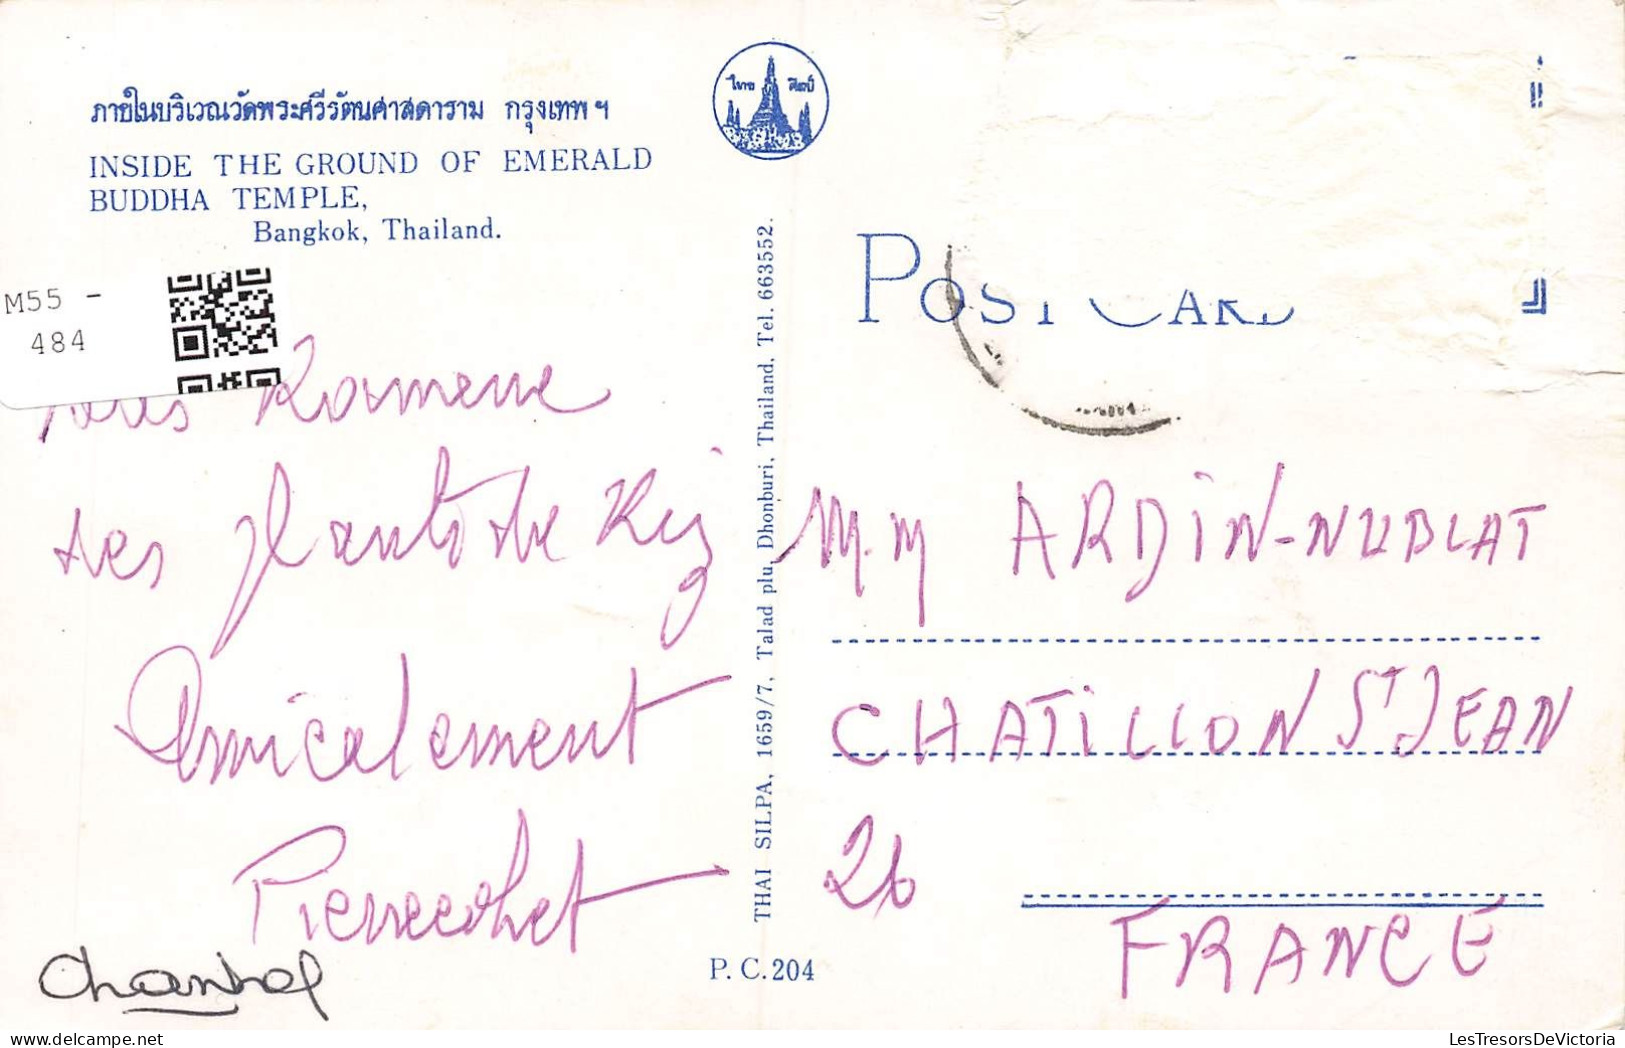 ภายในบริเวณวัดพระศรีรัตนศาสดาราม กรุงเทพฯ
INSIDE THE GROUND OF EMERALD
BUDDHA TEMPLE,
Bangkok, Thailand.
M55 -
484
ไทย ศิลป์
POST CARD
THAI SILPA, 1659/7, Talad plu, Dhonburi, Thailand, Tel. 663552.
P.C.204
des plants de Riz
Amicalement
Pierrecohet
Chantal
M.M ARDIN-NUBLAT
CHATILLON ST JEAN
26
FRANCE
LesTresorsDeVictoria